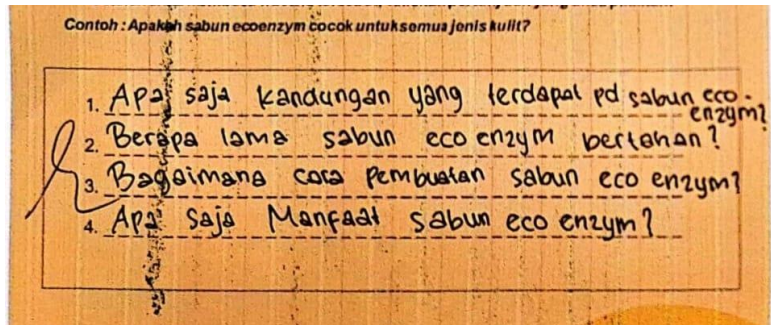 Contoh : Apakah sabun ecoenzym cocok untuk semua jenis kulit?
1. Apa saja kandungan yang terdapat pd sabun eco-
enzym?
2. Berapa lama sabun eco enzym bertahan?
3. Bagaimana cara pembuatan sabun eco enzym?
4. Apa saja Manfaat sabun eco enzym?